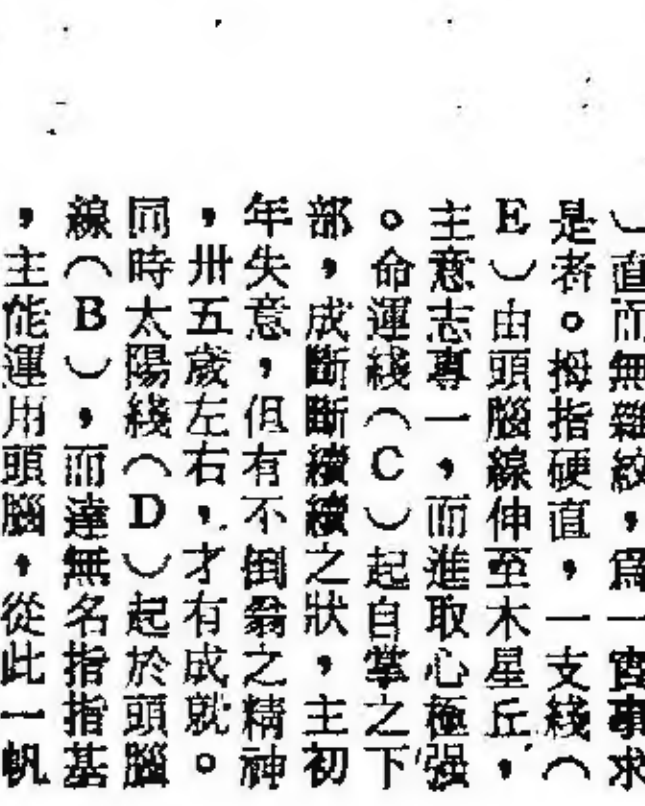 ）直而無雜紋，爲一實事求
是者。拇指硬直，一支綫（
E）由頭腦線伸至木星丘，
主意志專一，而進取心極强
。命運綫（C）起自掌之下
部，成斷斷續續之狀，主初
年失意，但有不倒翁之精神
，卅五歲左右，才有成就。
同時太陽綫（D）起於頭腦
線（B），而達無名指指基
，主能運用頭腦，從此一帆